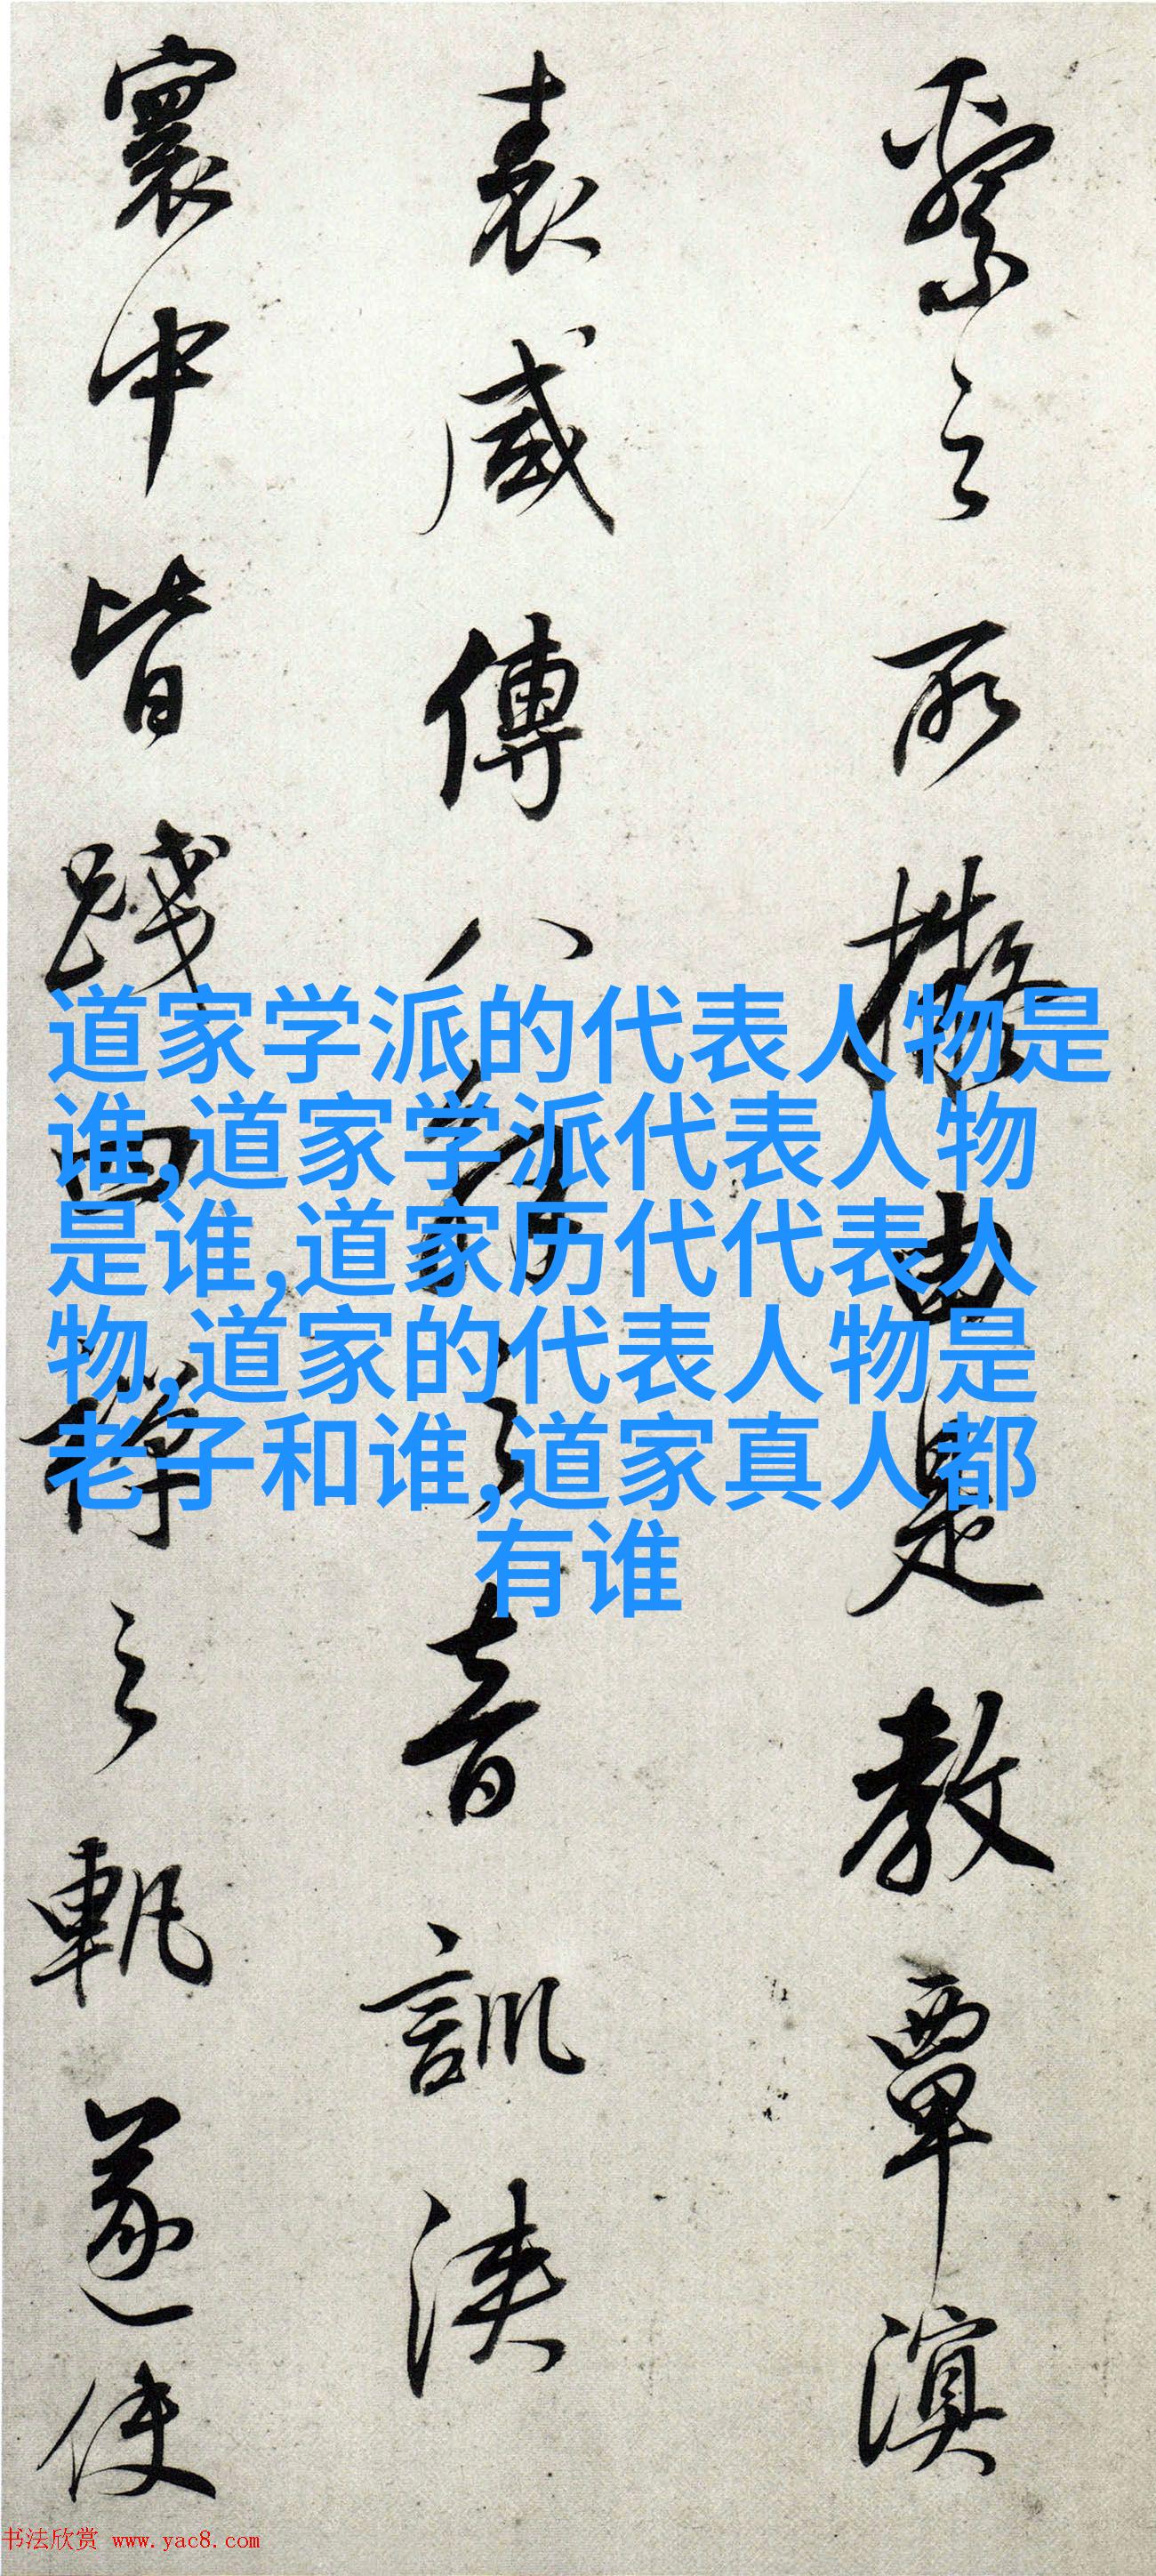 繫之所擬由是教覃溟
表咸傳八解之音訓浹
寰中皆踐四禪之軌遂使
道家学派的代表人物是
谁,道家学派代表人物
是谁,道家历代代表人
物,道家的代表人物是
老子和谁,道家真人都
有谁
书法欣赏 www.yac8.com